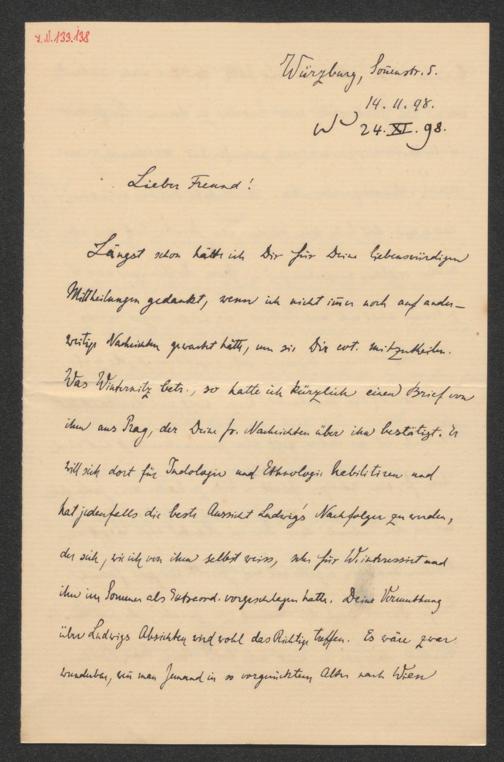 I.N.133.138
Würzburg, Sonnenstr. 5.
14. 11. 98.
24. XI. 98.
Lieber Freund!
Längst schon hätte ich Dir für Deine liebenswürdigen
Mittheilungen gedankt, wenn ich nicht im̅er noch auf ander-
weitige Nachrichten gewartet hätte, um sie Dir evt. mitzutheilen.
Was Winternitz betr., so hatte ich kürzlich einen Brief von
ihm aus Prag, der Deine fr. Nachrichten über ihn bestätigt. Er
will sich dort für Indologie und Ethnologie habilitiren und
hat jedenfalls die beste Aussicht Ludwig's Nachfolger zu werden,
der sich, wie ich von ihm selbst weiss, sehr für W. interessiert und
ihn im Sommer als Extraord. vorgeschlagen hatte. Deine Vermuthung
über Ludwigs Absichten wird wohl das Richtige treffen. Es wäre zwar
wunderbar, wen̅ man Jemand in so vorgerücktem Alter nach Wien